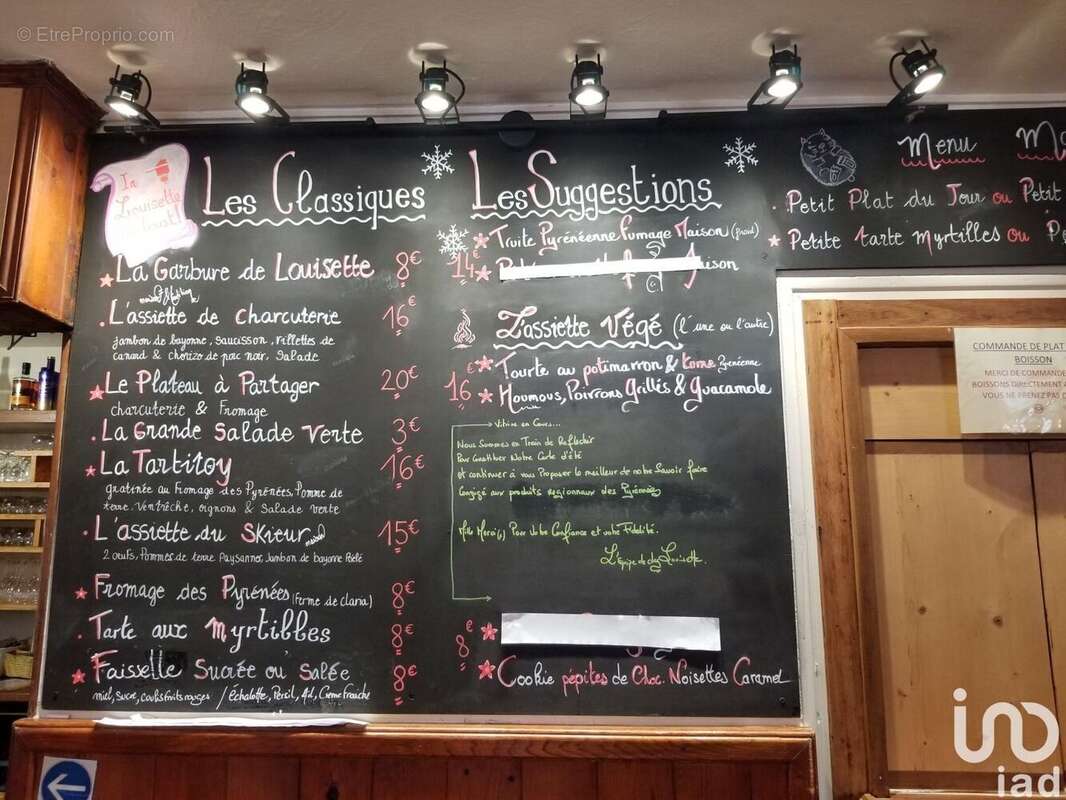 © EtreProprio.com
La
Louisette
Les Classiques
La Garbure de Louisette 8€
L'assiette de charcuterie 16€
jambon de bayonne, saucisson, rillettes de
canard & chorizo de porc noir, salade
Le Plateau à Partager 20€
charcuterie & Fromage
La Grande Salade Verte 3€
La Tartiloy 16€
gratinée au Fromage des Pyrénées, Pomme de
terre, Ventrêche, oignons & Salade verte
L'assiette du Skieur 15€
2 oeufs, Pommes de terre Paysannes, Jambon de bayonne Poêlé
Fromage des Pyrénées (Ferme de Claria) 8€
Tarte aux Myrtilles 8€
Faisselle Sucrée ou Salée 8€
miel, sucre, coulis fruits rouges / échalotte, Persil, Ail, Crème Fraîche
Les Suggestions
Truite Pyrénéenne Fumage Maison (froid)
14€
aison
L'assiette Végé (l'une ou l'autre)
Tourte au potimarron & Tome Pyrénéenne
16€ Houmous, Poivrons Grillés & Guacamole
Vitrine en Cours...
Nous Sommes en Train de Reflechir
Pour Constituer Notre Carte d'été
et continuer à vous Proposer le meilleur de notre Savoir faire
Conjugé aux produits regionnaux des Pyrénées
Mille Merci(s) Pour Votre Confiance et votre Fidelité.
L'équipe de chez Louisette.
8€
Cookie pépites de Choc. Noisettes Caramel
Menu
Petit Plat du Jour ou Petit
Petite tarte Myrtilles ou
COMMANDE DE PLAT
BOISSON
MERCI DE COMMANDE
BOISSONS DIRECTEMENT
VOUS NE PRENEZ PAS
iad